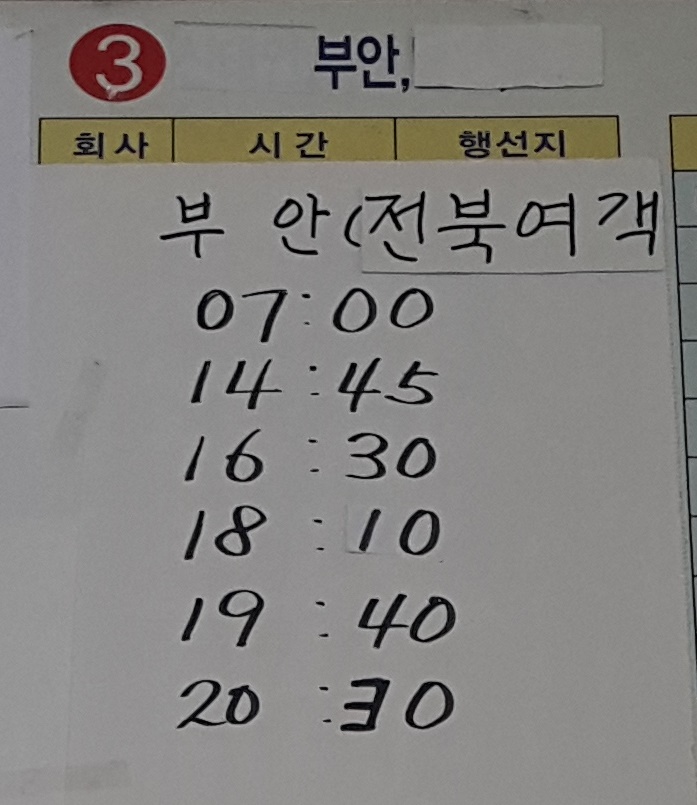 3 부안,
회사 시간 행선지
부 안(전북여객
07:00
14:45
16:30
18:10
19:40
20:30